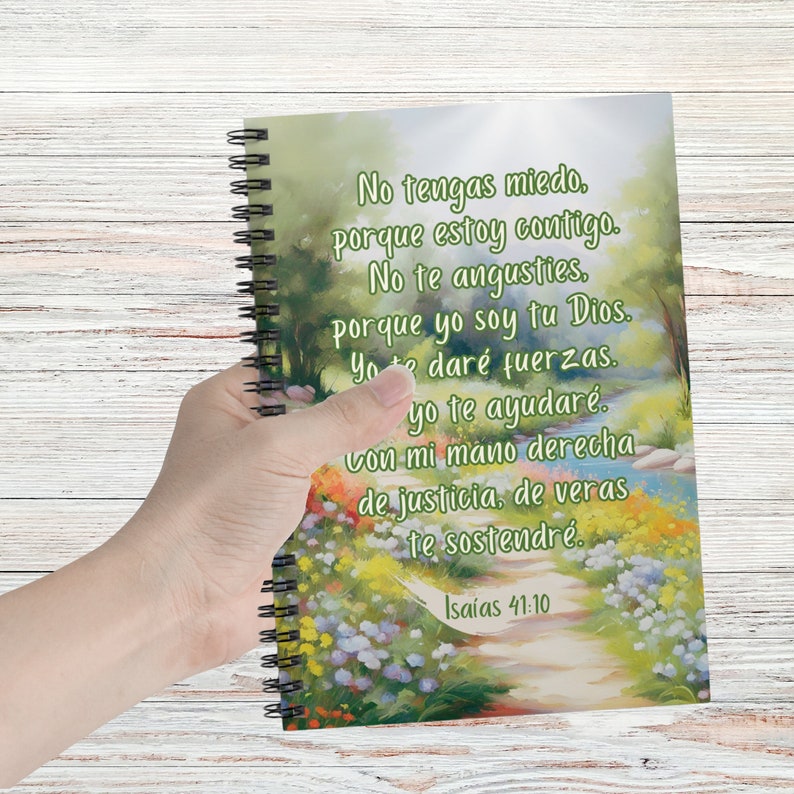 No tengas miedo,
porque estoy contigo.
No te angusties,
porque yo soy tu Dios.
Yo te daré fuerzas.
yo te ayudaré.
Con mi mano derecha
de justicia, de veras
te sostendré.
Isaías 41:10